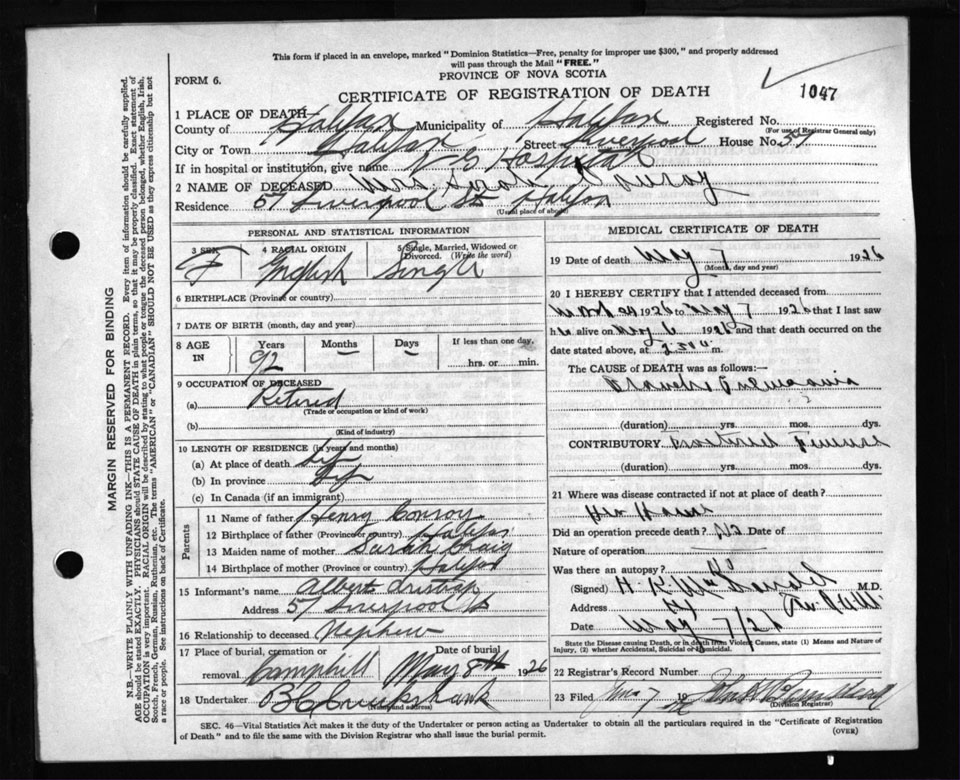 This form if placed in an envelope, marked "Dominion Statistics—Free, penalty for improper use $300," and properly addressed
will pass through the Mail "FREE."
FORM 6.
PROVINCE OF NOVA SCOTIA
1047
CERTIFICATE OF REGISTRATION OF DEATH
1 PLACE OF DEATH
County of Halifax Municipality of Halifax Registered No.
(For use of Registrar General only)
City or Town Halifax Street Liverpool House No. 57
If in hospital or institution, give name V G Hospital
2 NAME OF DECEASED Sarah Conroy
Residence 57 Liverpool St Halifax
(Usual place of abode)
PERSONAL AND STATISTICAL INFORMATION
3 SEX F
4 RACIAL ORIGIN English
5 Single, Married, Widowed or Divorced. (Write the word) Single
6 BIRTHPLACE (Province or country)
7 DATE OF BIRTH (month, day and year)
8 AGE IN Years Months Days If less than one day,
92 — — hrs. or min.
9 OCCUPATION OF DECEASED
(a) Retired
(Trade or occupation or kind of work)
(b)
(Kind of industry)
10 LENGTH OF RESIDENCE (in years and months)
(a) At place of death life
(b) In province life
(c) In Canada (if an immigrant)
Parents
11 Name of father Henry Conroy
12 Birthplace of father (Province or country) Halifax
13 Maiden name of mother Sarah Craig
14 Birthplace of mother (Province or country) Halifax
15 Informant's name Albert
Address 57 Liverpool St
16 Relationship to deceased Nephew
17 Place of burial, cremation or removal Camphill
Date of burial May 8th 1926
18 Undertaker
(Name and address)
MEDICAL CERTIFICATE OF DEATH
19 Date of death May 7 1926
(Month, day and year)
20 I HEREBY CERTIFY that I attended deceased from
1926 to May 7 1926 that I last saw
h alive on May 6 1926 and that death occurred on
date stated above, at m.
The CAUSE OF DEATH was as follows:—
Pneumonia
(duration) yrs. mos. dys.
CONTRIBUTORY Fractured Femur
(duration) yrs. mos. dys.
21 Where was disease contracted if not at place of death?
Her Home
Did an operation precede death? No Date of
Nature of operation
Was there an autopsy?
(Signed) M.D.
Address
Date May 7/26
State the Disease causing Death, or in death from Violent Causes, state (1) Means and Nature of
Injury, (2) whether Accidental, Suicidal or Homicidal.
22 Registrar's Record Number
23 Filed 7 19
(Division Registrar)
SEC. 46—Vital Statistics Act makes it the duty of the Undertaker or person acting as Undertaker to obtain all the particulars required in the "Certificate of Registration
of Death" and to file the same with the Division Registrar who shall issue the burial permit.
(OVER)
MARGIN RESERVED FOR BINDING
N.B.—WRITE PLAINLY WITH UNFADING INK—THIS IS A PERMANENT RECORD. Every item of information should be carefully supplied.
AGE should be stated EXACTLY. PHYSICIANS should STATE CAUSE OF DEATH in plain terms, so that it may be properly classified. Exact statement of
OCCUPATION is very important. RACIAL ORIGIN will be described by stating to what people or tongue the deceased person belonged, whether English, Irish,
Scotch, French, German, Russian, Ruthenian, etc. The terms "AMERICAN" or "CANADIAN" SHOULD NOT BE USED as they express citizenship but not
a race or people. See instructions on back of Certificate.